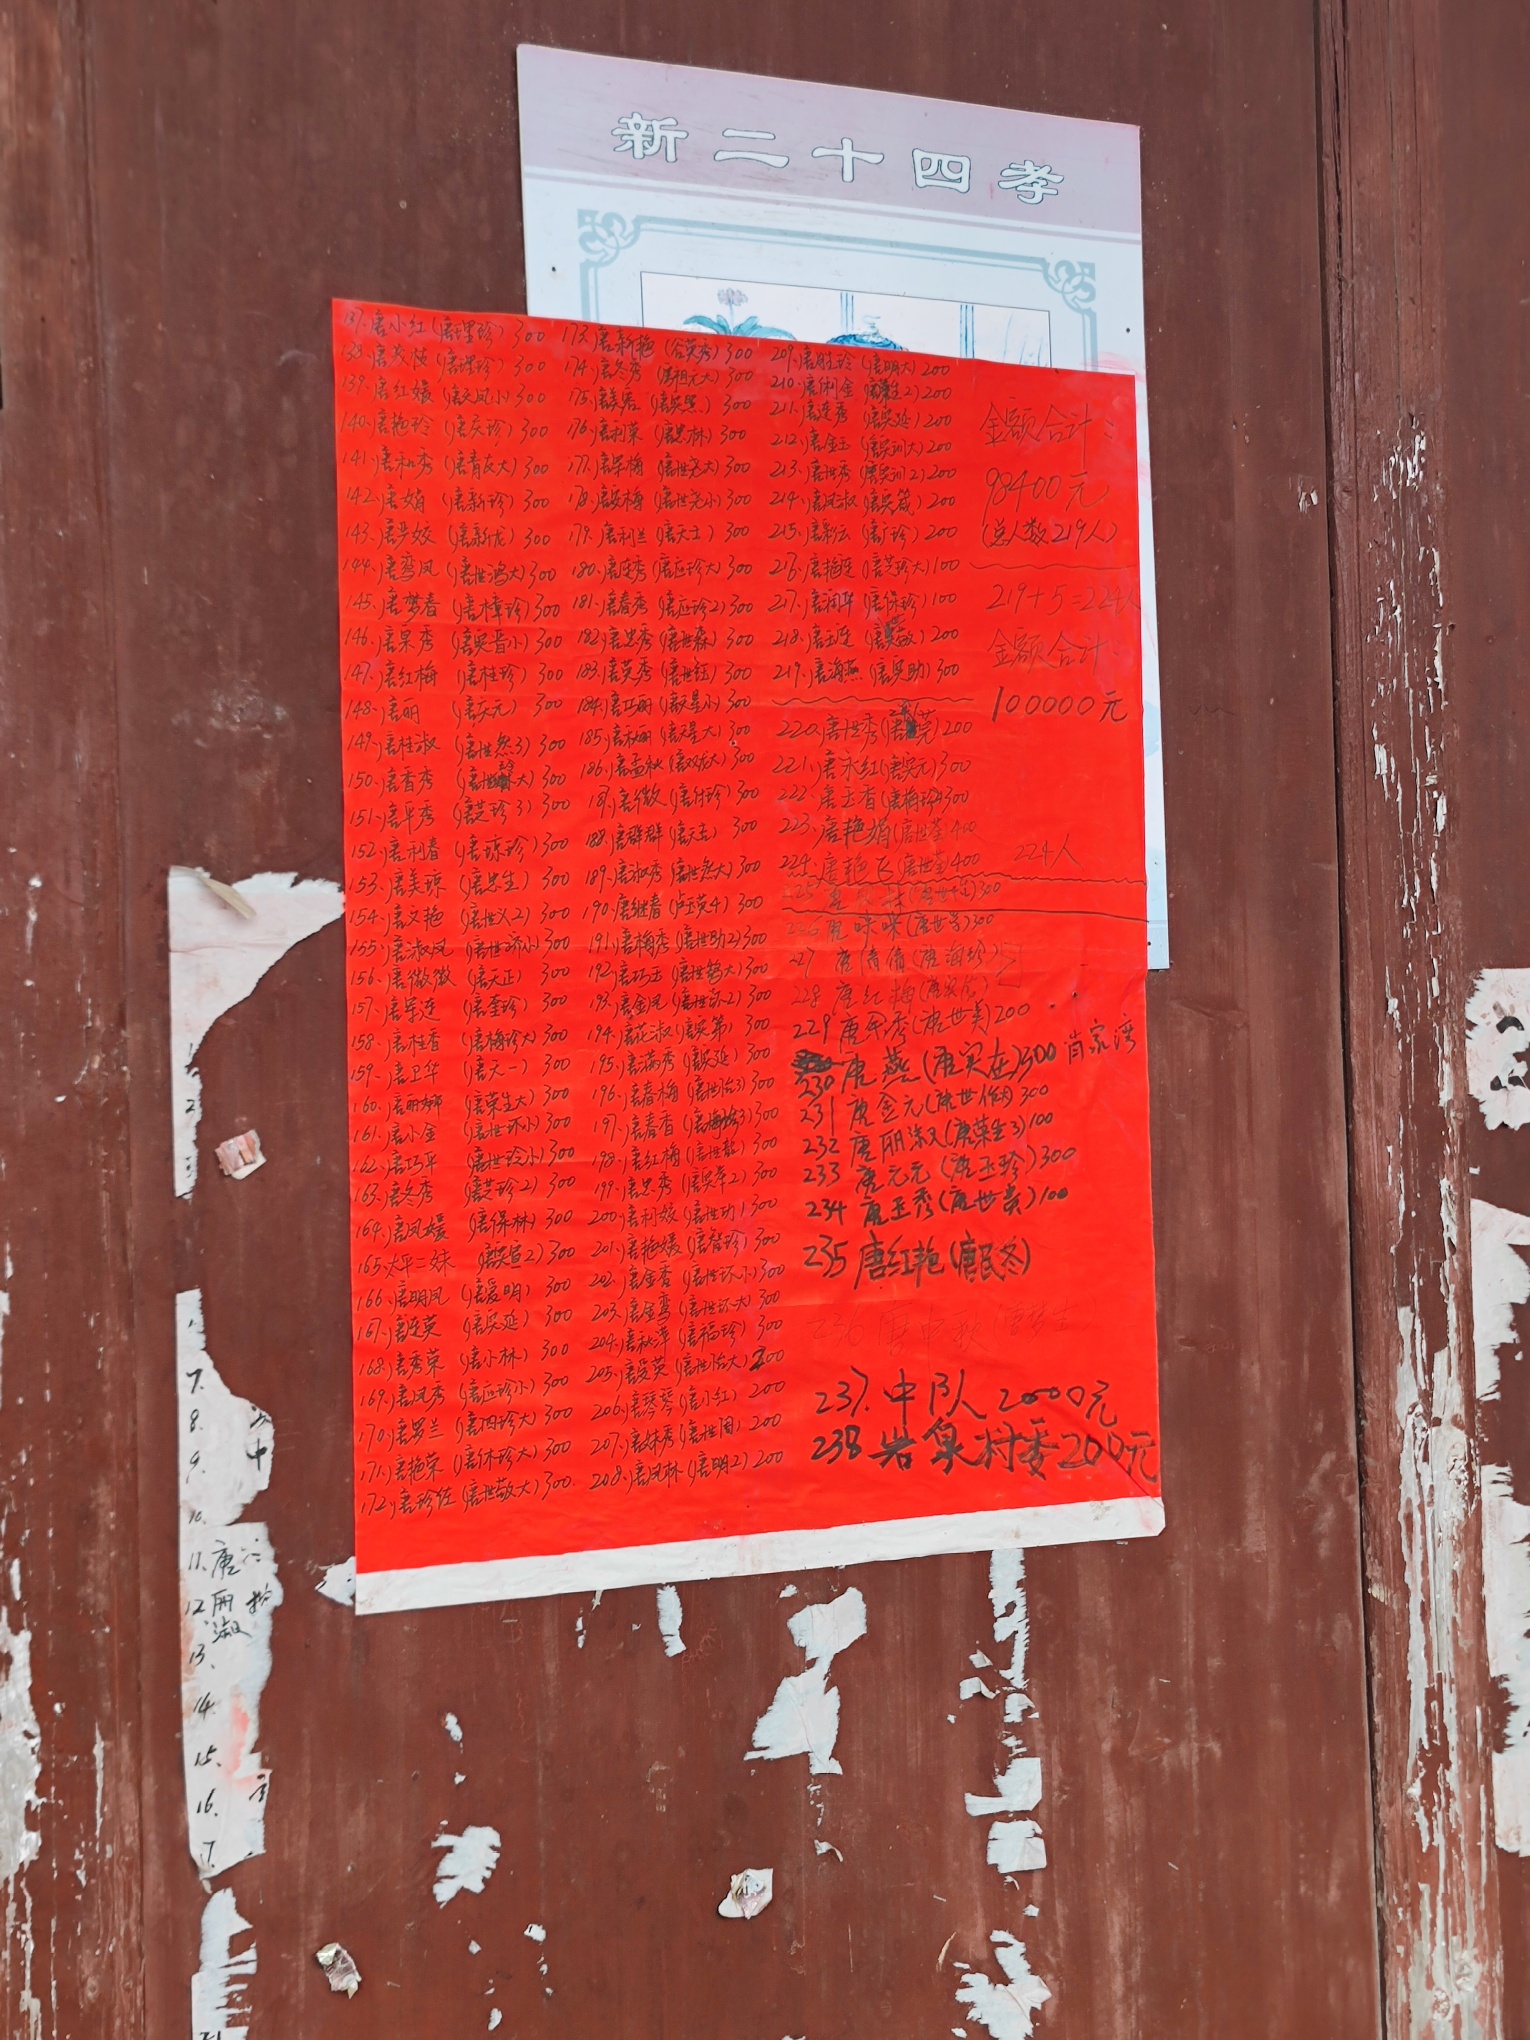 新二十四孝
137.唐小红(唐理珍)300
138.唐茂枝(唐理珍)300
139.唐红媛(唐文凤小)300
140.唐艳玲(唐庆珍)300
141.唐和秀(唐青友大)300
142.唐娟(唐新珍)300
143.唐姣(唐新龙)300
144.唐鸾凤(唐世鸿大)300
145.唐梦春(唐樟珍)300
146.唐果秀(唐昊晋小)300
147.唐红梅(唐桂珍)300
148.唐明(唐庆元)300
149.唐桂淑(唐世然3)300
150.唐香秀(唐世大)300
151.唐平秀(唐芝珍3)300
152.唐利春(唐琼珍)300
153.唐美琼(唐忠生)300
154.唐文艳(唐世义2)300
155.唐淑凤(唐世小)300
156.唐微微(唐天正)300
157.唐连(唐奎珍)300
158.唐桂香(唐梅珍大)300
159.唐卫华(唐天一)300
160.唐丽娜(唐荣生大)300
161.唐小金(唐世环小)300
162.唐巧平(唐世玲小)300
163.唐冬秀(唐芝珍2)300
164.唐凤媛(唐保林)300
165.太平二妹(唐宣2)300
166.唐明凤(唐爱明)300
167.唐连英(唐昊延)300
168.唐秀荣(唐小林)300
169.唐凤秀(唐应珍小)300
170.唐罗兰(唐珍大)300
171.唐艳荣(唐休珍大)300
172.唐珍佐(唐世敬大)300
173.唐新艳(谷英秀)300
174.唐冬秀(唐祖元大)300
175.唐美(唐昊)300
176.唐利荣(唐忠林)300
177.唐梅(唐世尧大)300
178.唐梅(唐世尧小)300
179.唐利兰(唐天士)300
180.唐连秀(唐应珍大)300
181.唐春秀(唐应珍2)300
182.唐忠秀(唐世森)300
183.唐英秀(唐世钰)300
184.唐巧丽(唐天星小)300
185.唐秋丽(唐天星大)300
186.唐孟秋(唐双龙大)300
187.唐微(唐付珍)300
188.唐群群(唐天主)300
189.唐淑秀(唐世然大)300
190.唐继春(卢玉英4)300
191.唐梅秀(唐世助2)300
192.唐巧玉(唐世鹤大)300
193.唐金凤(唐世2)300
194.唐花淑(唐昊第)300
195.唐满秀(唐昊延)300
196.唐春梅(唐世怡3)300
197.唐春香(唐珍3)300
198.唐红梅(唐世龍)300
199.唐忠秀(唐昊2)300
200.唐利姣(唐世功)300
201.唐艳媛(唐智珍)300
202.唐金香(唐世环小)300
203.唐金鸾(唐世环大)300
204.唐秋萍(唐福珍)300
205.唐爱英(唐世怡大)200
206.唐琴琴(唐小红)200
207.唐妹秀(唐世国)200
208.唐凤林(唐明2)200
209.唐胜玲(唐明大)200
210.唐俐金(唐荣生2)200
211.唐连秀(唐昊延)200
212.唐金玉(唐昊训大)200
213.唐世秀(唐昊训2)200
214.唐凤淑(唐昊箴)200
215.唐彩云(唐广珍)200
216.唐艳连(唐芝珍大)100
217.唐润华(唐保珍)100
218.唐玉连(唐敏)200
219.唐海燕(唐昊助)300
220.唐世秀(唐)200
221.唐永红(唐昊元)300
222.唐玉香(唐梅珍)300
223.唐艳娟(唐世荃)400
224.唐艳飞(唐世荃)400
225 唐(唐世)300
226 唐咪咪(唐世学)300
227 唐倩倩(唐海珍)
228 唐红梅(唐)
229 唐年秀(唐世美)200
230 唐燕(唐实在)300 肖家湾
231 唐金元(唐世作)300
232 唐丽(唐荣生3)100
233 唐元元(唐玉珍)300
234 唐玉秀(唐世贵)100
235 唐红艳(唐民冬)
236 唐中秋
237.中队 2000元
238 岩泉村委200元
金额合计:
98400元
(总人数219人)
219+5=224人
金额合计:
100000元
224人
7.
8.
9. 中
10.
11.唐
12.丽
淑
13.
14.
15.
16.
17.